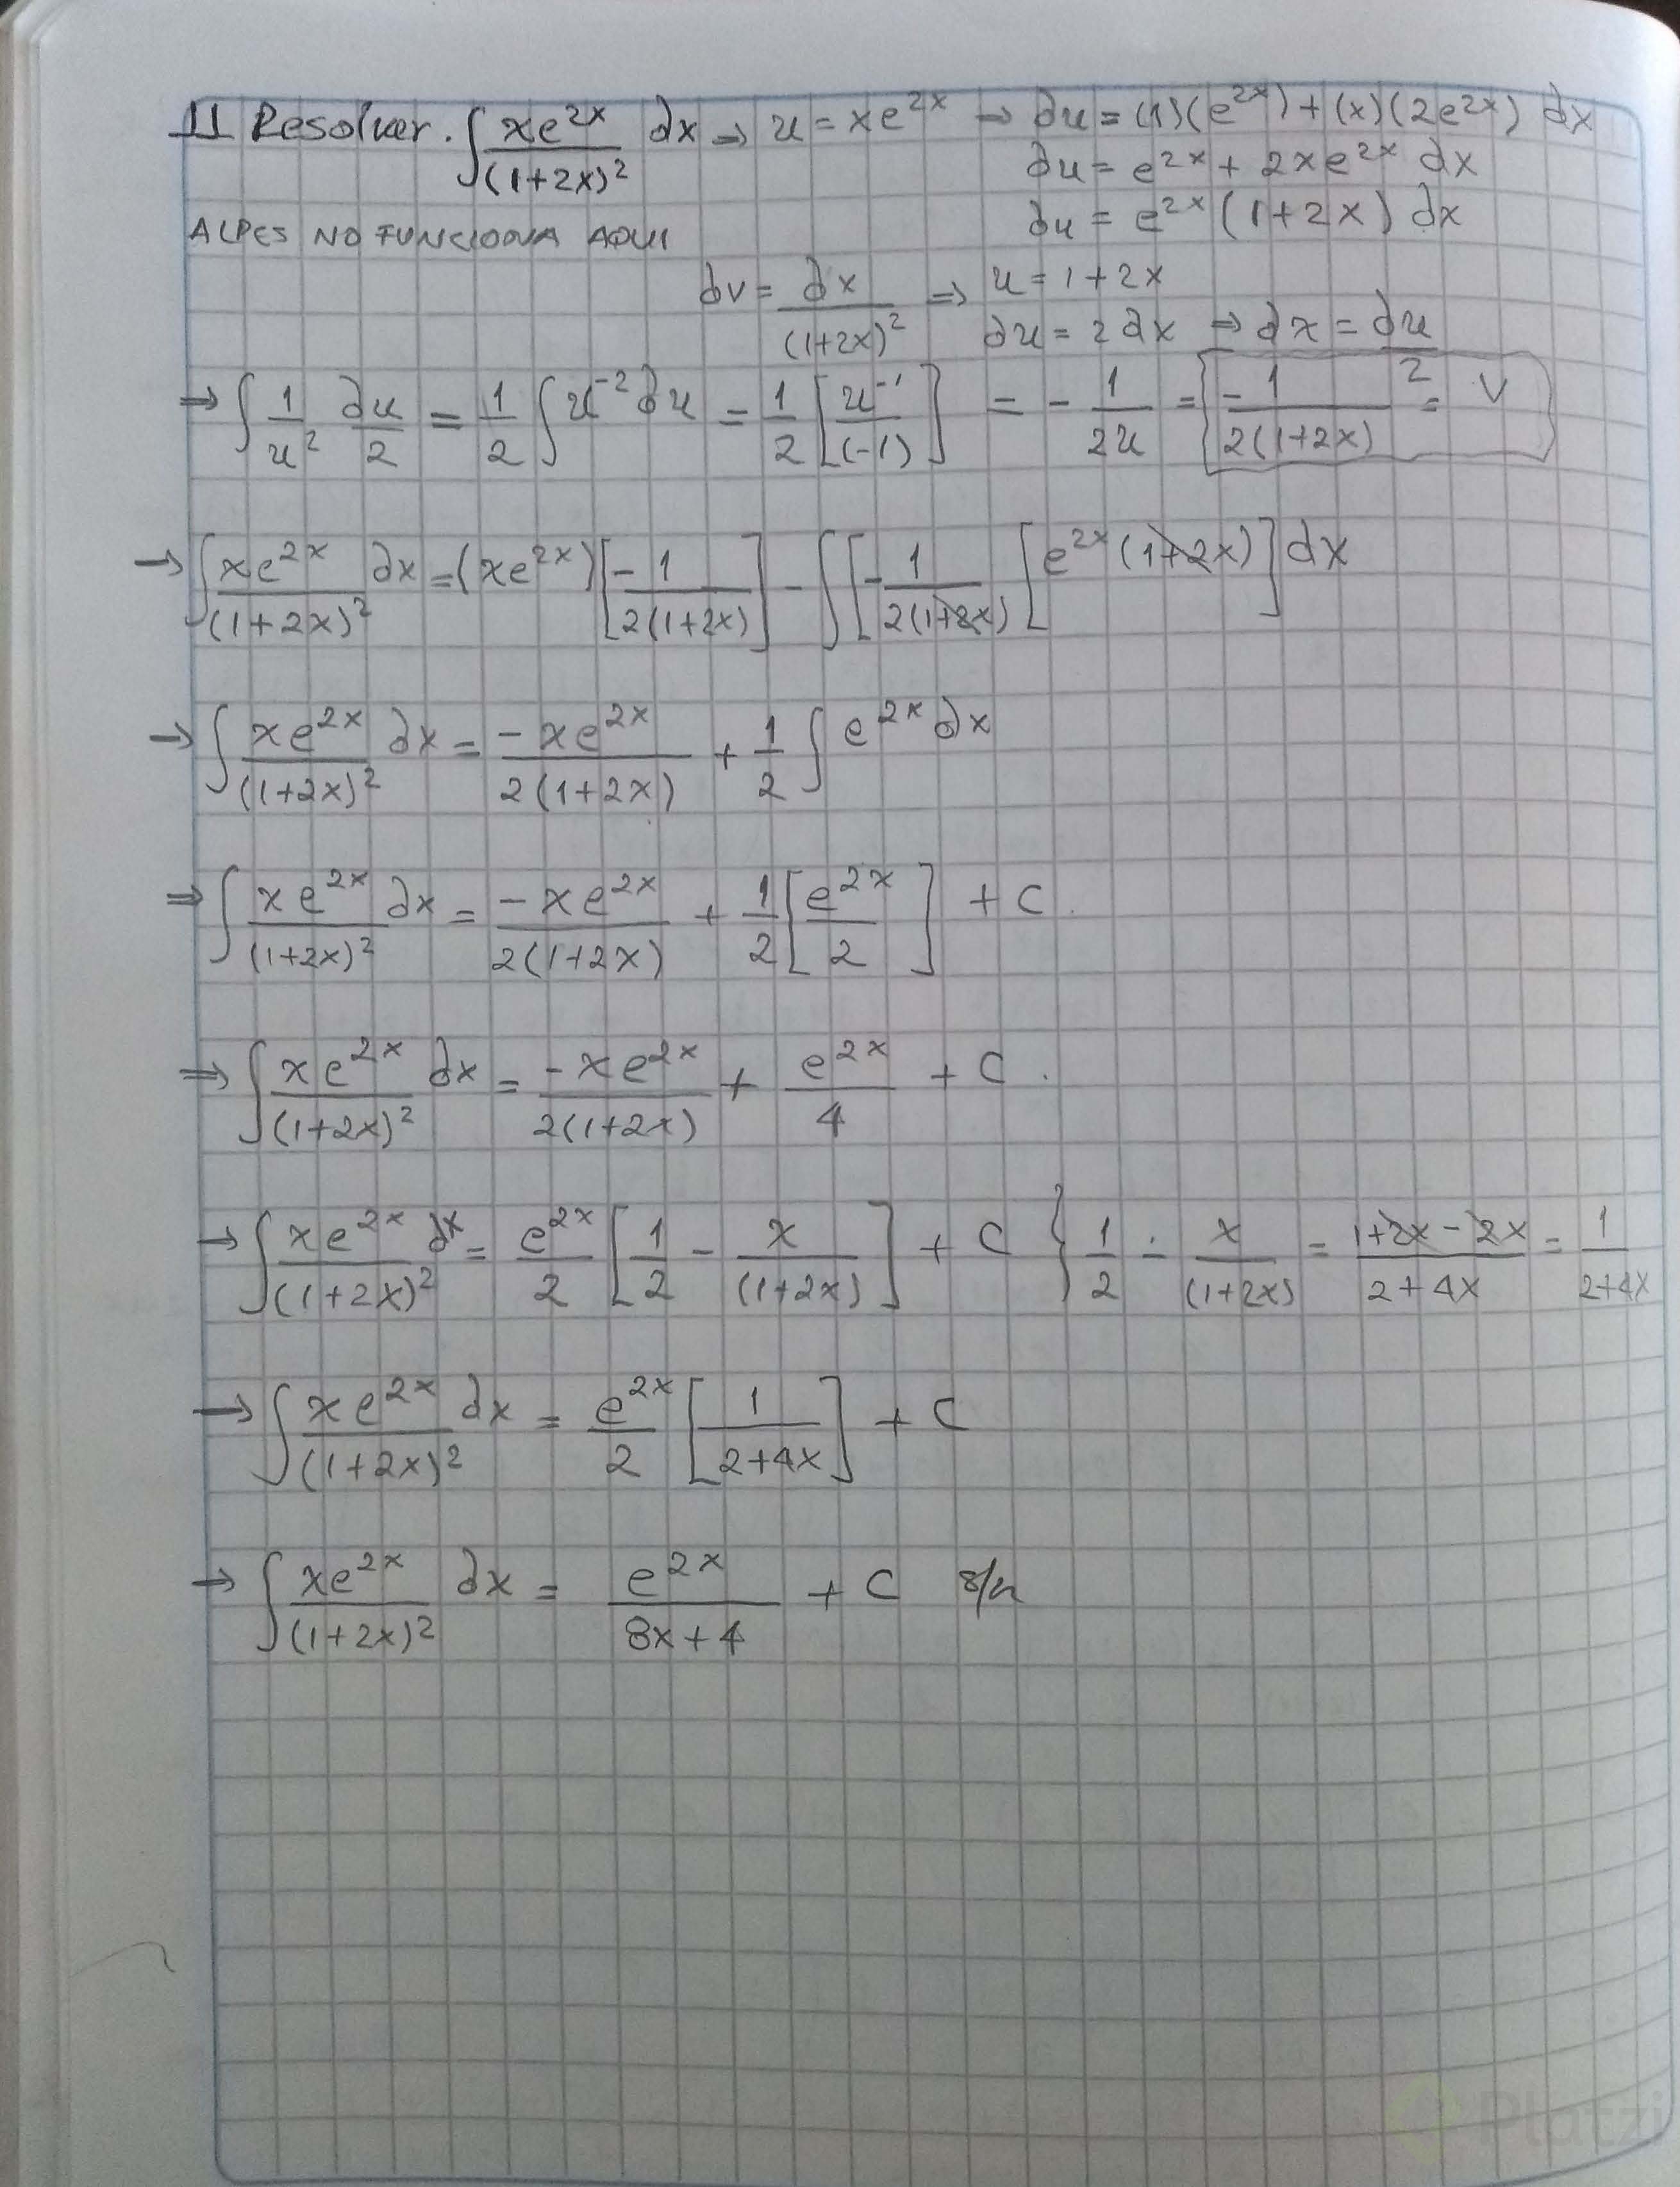 11 Resolver. ∫ xe^{2x}/(1+2x)^2 ∂x ⇒ u = xe^{2x} → ∂u = (1)(e^{2x}) + (x)(2e^{2x}) ∂x
∂u = e^{2x} + 2xe^{2x} ∂x
∂u = e^{2x} (1+2x) ∂x
ALPES NO FUNCIONA AQUI
∂v = ∂x/(1+2x)^2 ⇒ u = 1+2x
∂u = 2∂x ⇒ ∂x = ∂u/2
→ ∫ 1/u^2 ∂u/2 = 1/2 ∫ u^{-2} ∂u = 1/2 [u^{-1}/(-1)] = - 1/2u = -1/2(1+2x) = V
→ ∫ xe^{2x}/(1+2x)^2 ∂x = (xe^{2x}) [-1/2(1+2x)] - ∫ [-1/2(1+2x) [e^{2x}(1+2x)] dx
→ ∫ xe^{2x}/(1+2x)^2 ∂x = -xe^{2x}/2(1+2x) + 1/2 ∫ e^{2x} ∂x
⇒ ∫ xe^{2x}/(1+2x)^2 ∂x = -xe^{2x}/2(1+2x) + 1/2 [e^{2x}/2] + C.
⇒ ∫ xe^{2x}/(1+2x)^2 ∂x = -xe^{2x}/2(1+2x) + e^{2x}/4 + C.
→ ∫ xe^{2x}/(1+2x)^2 ∂x = e^{2x}/2 [1/2 - x/(1+2x)] + C { 1/2 - x/(1+2x) = 1+2x-2x/2+4x = 1/2+4x
→ ∫ xe^{2x}/(1+2x)^2 ∂x = e^{2x}/2 [1/2+4x] + C
→ ∫ xe^{2x}/(1+2x)^2 ∂x = e^{2x}/8x+4 + C
Platzi